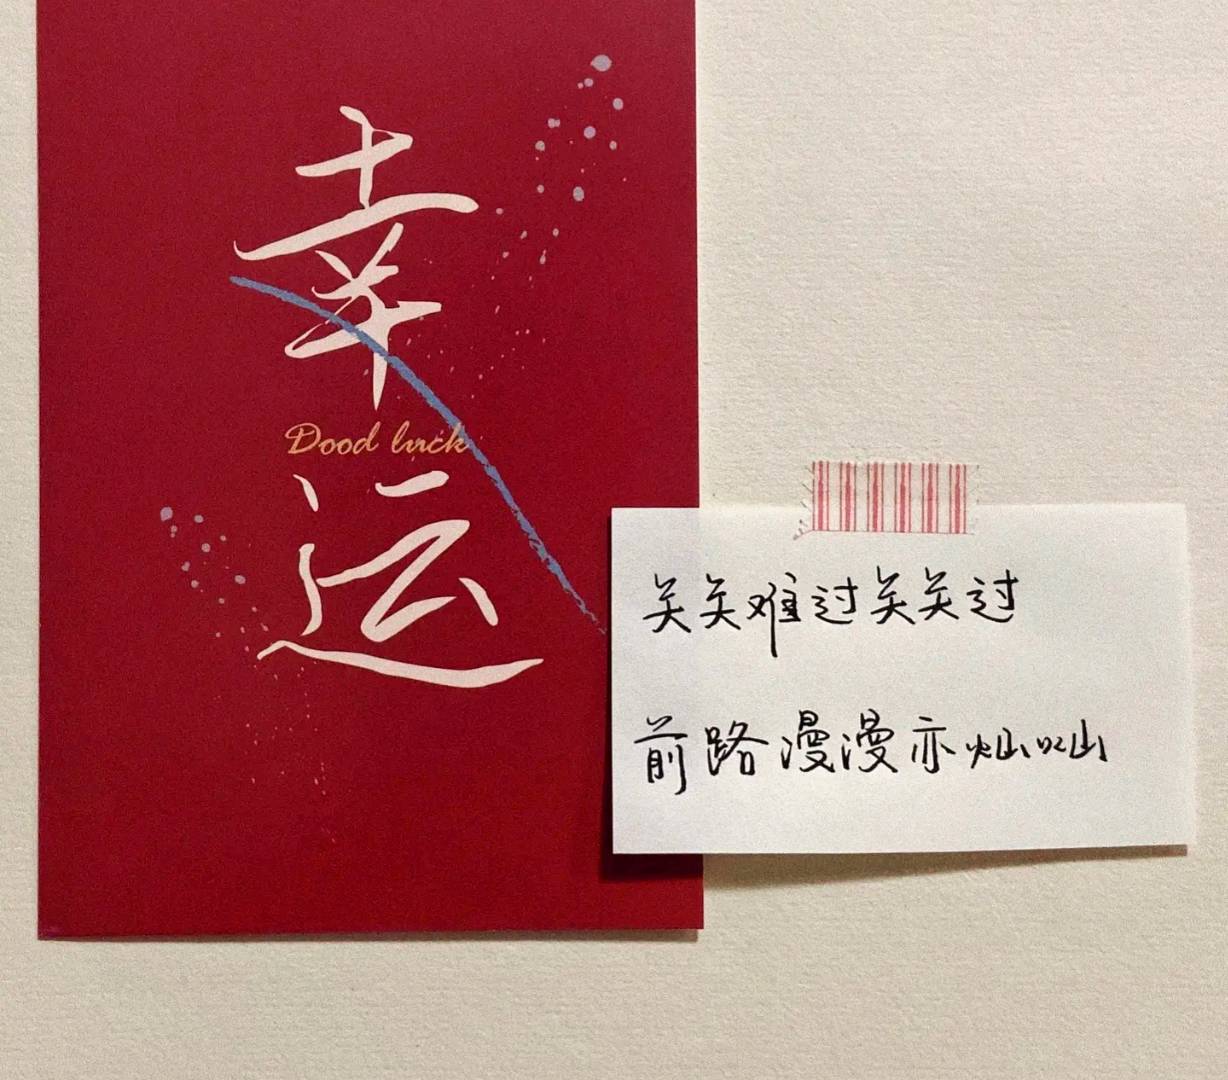 幸
Dood luck
运
关关难过关关过
前路漫漫亦灿灿